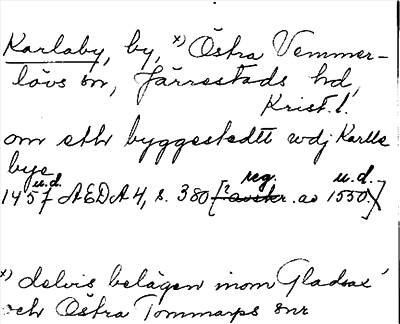 Karlaby, by, x) Östra Vemmer-
lövs sn, Järrestads hd,
Krist. l.
om eth byggestedtt wdj Karlle
bye
u.d. reg. u.d.
1457 AEDA 4, s. 380 [? avskr. av 1550.]
x) delvis belägen inom Gladsax'
och Östra Tommarps snr